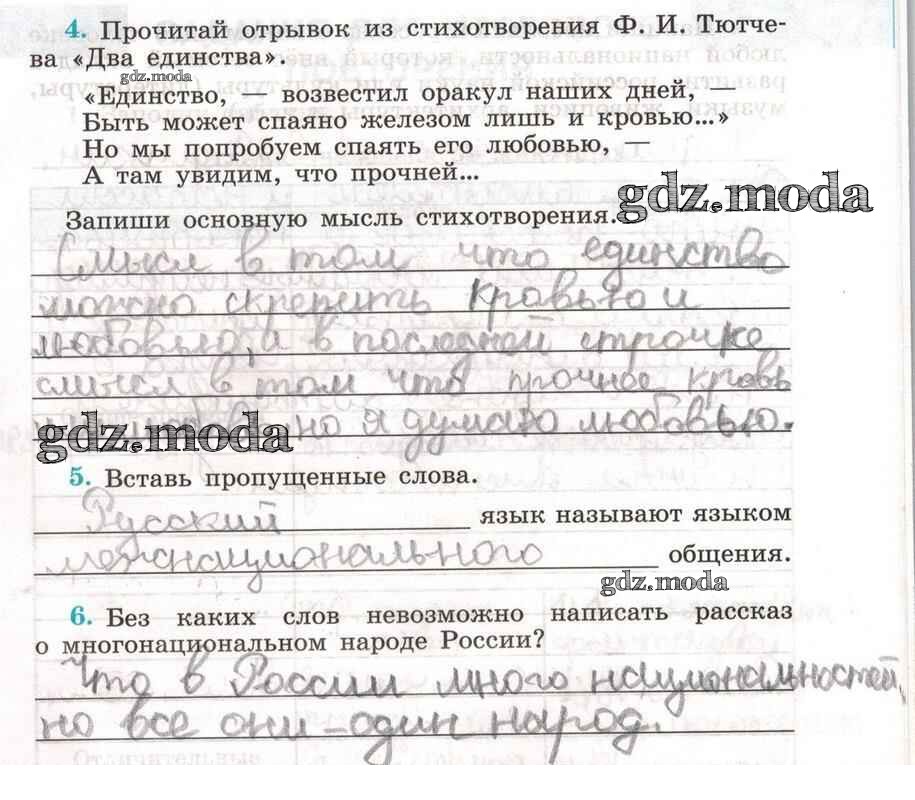 4. Прочитай отрывок из стихотворения Ф. И. Тютче-
ва «Два единства».
gdz.moda
«Единство, — возвестил оракул наших дней, —
Быть может спаяно железом лишь и кровью...»
Но мы попробуем спаять его любовью, —
А там увидим, что прочней...
gdz.moda
Запиши основную мысль стихотворения.
Смысл в том что единство
можно скрепить кровью и
любовью, а в последней строчке
смысл в том что прочнее кровь
но я думаю любовью.
gdz.moda
5. Вставь пропущенные слова.
Русский язык называют языком
межнационального общения.
gdz.moda
6. Без каких слов невозможно написать рассказ
о многонациональном народе России?
Что в России много национальностей,
но все они – один народ.